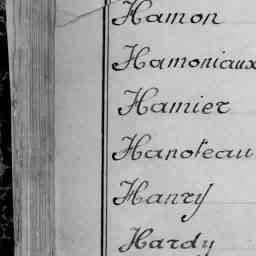 Hamon
Hamoniaux
Hamier
Hanoteau
Hanry
Hardy